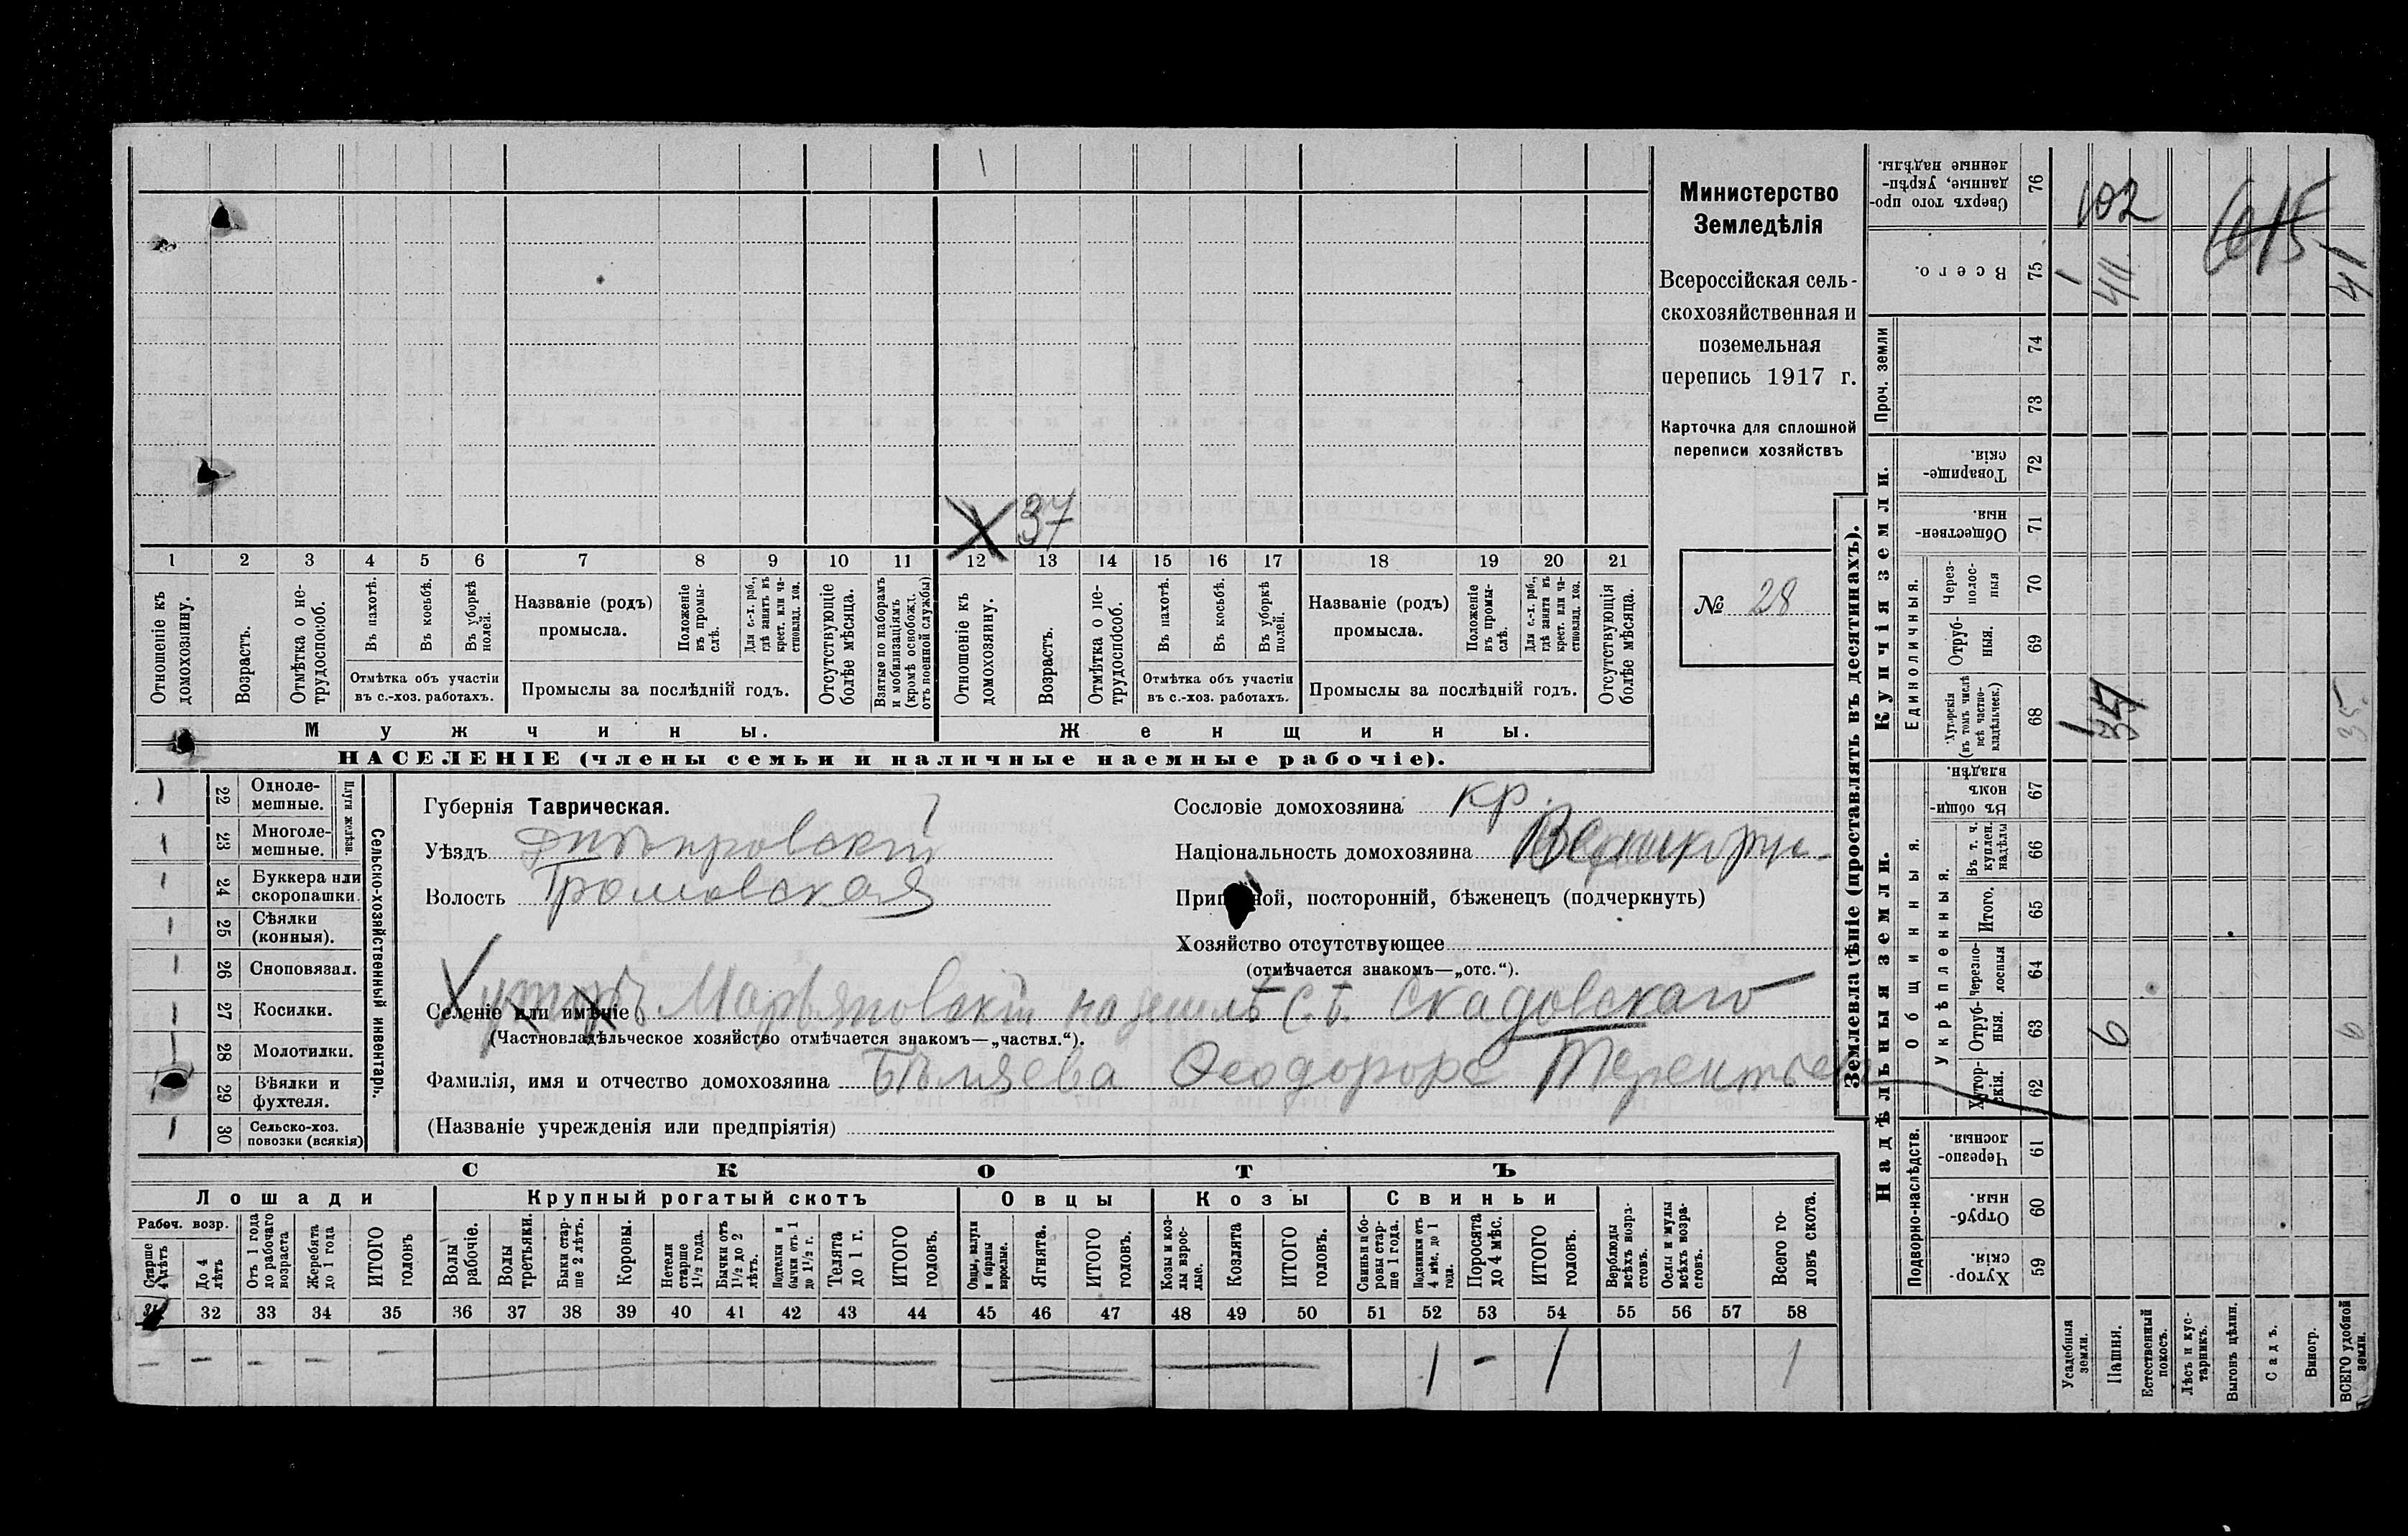 Министерство
Земледѣлія
Всероссійская сель-
скохозяйственная и
поземельная
перепись 1917 г.
Карточка для сплошной
переписи хозяйствъ
№ 28
Х 37
1 2 3 4 5 6 7 8 9 10 11 12 13 14 15 16 17 18 19 20 21
Отношеніе къ домохозяину.
Возрастъ.
Отмѣтка о не-трудоспособ.
Въ пахотѣ.
Въ косьбѣ.
Въ уборкѣ полей.
Отмѣтка объ участіи
въ с.-хоз. работахъ.
Названіе (родъ)
промысла.
Положеніе въ промы-слѣ.
Для с.-х. раб., гдѣ занятъ въ крест. или ча-стновлад. хоз.
Промыслы за послѣдній годъ.
Отсутствующіе болѣе мѣсяца.
Взятые по наборамъ и мобилизаціямъ (кромѣ освобожд. отъ военной службы)
Отношеніе къ домохозяину.
Возрастъ.
Отмѣтка о не-трудоспособ.
Въ пахотѣ.
Въ косьбѣ.
Въ уборкѣ полей.
Отмѣтка объ участіи
въ с.-хоз. работахъ.
Названіе (родъ)
промысла.
Положеніе въ промы-слѣ.
Для с.-х. раб., гдѣ занята въ крест. или ча-стновлад. хоз.
Промыслы за послѣдній годъ.
Отсутствующія болѣе мѣсяца.
Мужчины.
Женщины.
НАСЕЛЕНІЕ (члены семьи и наличные наемные рабочіе).
22 Одноле-мешные.
23 Многоле-мешные.
Плуги желѣзн.
24 Буккера или скоропашки.
25 Сѣялки (конныя).
26 Сноповязал.
27 Косилки.
28 Молотилки.
29 Вѣялки и фухтеля.
30 Сельско-хоз. повозки (всякія)
Сельско-хозяйственный инвентарь.
Губернія Таврическая.
Уѣздъ Днѣпровскій
Волость Громовская
Сословіе домохозяина кр.
Національность домохозяина
Приписной, посторонній, бѣженецъ (подчеркнуть)
Хозяйство отсутствующее
(отмѣчается знакомъ—„отс.“).
Селеніе или имѣніе
Хуторъ Марьяновскій на землѣ С. Б. Скадовскаго
(Частновладѣльческое хозяйство отмѣчается знакомъ—„частвл.“).
Фамилія, имя и отчество домохозяина Бѣляева Терентьев
(Названіе учрежденія или предпріятія)
СКОТЪ
Лошади
Крупный рогатый скотъ
Овцы
Козы
Свиньи
Рабоч. возр.
Старше 4 лѣтъ
До 4 лѣтъ
Отъ 1 года до рабочаго возраста
Жеребята до 1 года
ИТОГО головъ
Волы рабочіе.
Волы третьяки.
Быки стар-ше 2 лѣтъ.
Коровы.
Нетели старше 1½ года.
Бычки отъ 1½ до 2 лѣтъ.
Подтелки и бычки отъ 1 до 1½ г.
Телята до 1 г.
ИТОГО головъ.
Овцы, валухи и бараны взрослые.
Ягнята.
ИТОГО головъ.
Козы и коз-лы взрос-лые.
Козлята
ИТОГО головъ.
Свиньи и бо-ровы стар-ше 1 года.
Подсвинки отъ 4 мѣс. до 1 года.
Поросята до 4 мѣс.
ИТОГО головъ.
Верблюды всѣхъ возра-стовъ.
Ослы и мулы всѣхъ возра-стовъ.
Всего го-ловъ скота.
31 32 33 34 35 36 37 38 39 40 41 42 43 44 45 46 47 48 49 50 51 52 53 54 55 56 57 58
1 - 1 1
Землевладѣніе (проставлять въ десятинахъ).
Надѣльныя земли.
Купчія земли.
Проч. земли
Подворно-наслѣдств.
Общинныя.
Укрѣпленныя.
Единоличныя.
Сверхъ того про-данные, укрѣп-ленные надѣлы. 76 102
Всего. 75 1 41 41
74
73
Товарище-скія. 72
Обществен-ныя. 71
Через-полос-ныя 70
Отруб-ныя. 69
Хуторскія (въ томъ числѣ всѣ частно-владѣльческ.) 68 1 35
Въ общин-номъ владѣн. 67
Въ т. ч. куплен. надѣлы 66
Итого. 65
Черезпо-лосныя 64
Отруб-ныя. 63 6 6
Хутор-скія. 62
Черезпо-лосныя. 61
Отруб-ныя. 60
Хутор-скія. 59
Усадебныя земли.
Пашня.
Естественный покосъ.
Лѣсъ и кус-тарникъ.
Выгонъ цѣлин.
Садъ.
Виногр.
ВСЕГО удобной земли.